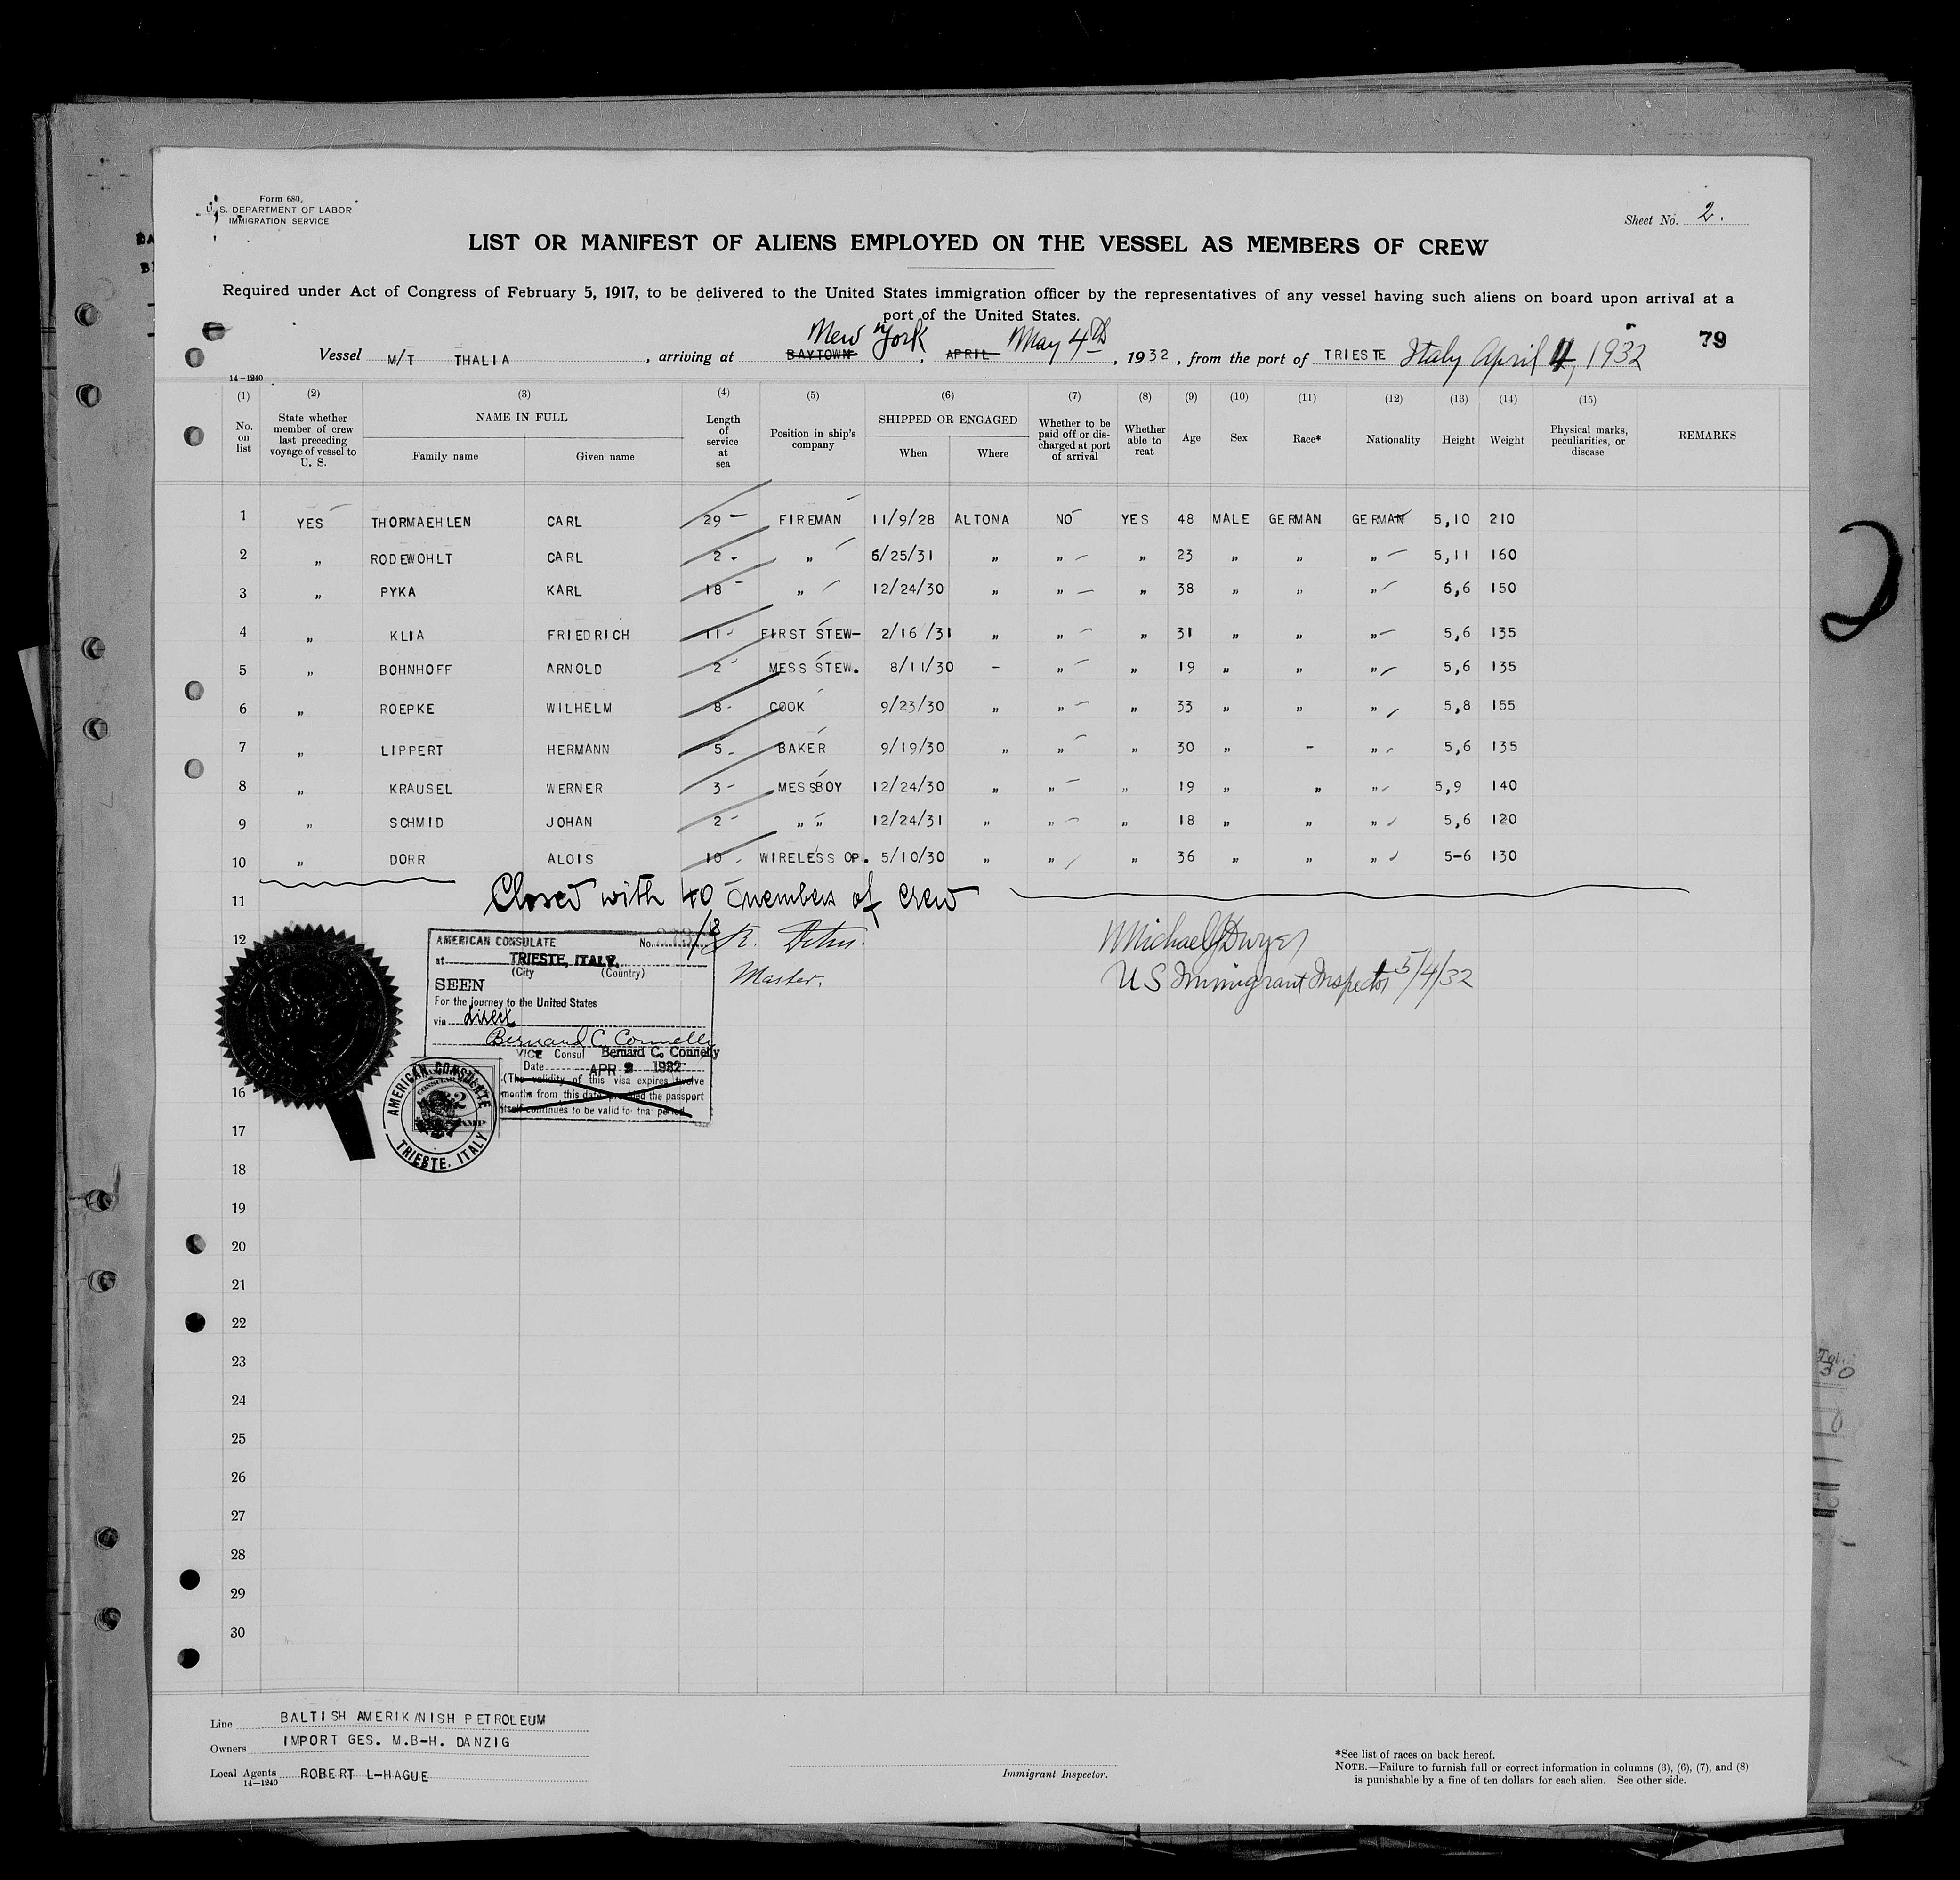 Form 680
U. S. DEPARTMENT OF LABOR
IMMIGRATION SERVICE
Sheet No. 2.
LIST OR MANIFEST OF ALIENS EMPLOYED ON THE VESSEL AS MEMBERS OF CREW
Required under Act of Congress of February 5, 1917, to be delivered to the United States immigration officer by the representatives of any vessel having such aliens on board upon arrival at a
port of the United States.
79
Vessel M/T THALIA, arriving at BAYTOWN New York, APRIL May 4th, 1932, from the port of TRIESTE Italy April 4, 1932
14-1240
(1) No. on list (2) State whether member of crew last preceding voyage of vessel to U. S. (3) NAME IN FULL Family name Given name (4) Length of service at sea (5) Position in ship's company (6) SHIPPED OR ENGAGED When Where (7) Whether to be paid off or discharged at port of arrival (8) Whether able to reat (9) Age (10) Sex (11) Race* (12) Nationality (13) Height (14) Weight (15) Physical marks, peculiarities, or disease REMARKS
1 YES THORMAEHLEN CARL 29 FIREMAN 11/9/28 ALTONA NO YES 48 MALE GERMAN GERMAN 5,10 210
2 " RODEWOHLT CARL 2 " 6/25/31 " " " 23 " " " 5,11 160
3 " PYKA KARL 18 " 12/24/30 " " " 38 " " " 6,6 150
4 " KLIA FRIEDRICH 11 FIRST STEW- 2/16/31 " " " 31 " " " 5,6 135
5 " BOHNHOFF ARNOLD 2 MESS STEW. 8/11/30 - " " 19 " " " 5,6 135
6 " ROEPKE WILHELM 8 COOK 9/23/30 " " " 33 " " " 5,8 155
7 " LIPPERT HERMANN 5 BAKER 9/19/30 " " " 30 " - " 5,6 135
8 " KRAUSEL WERNER 3 MESSBOY 12/24/30 " " " 19 " " " 5,9 140
9 " SCHMID JOHAN 2 " " 12/24/31 " " " 18 " " " 5,6 120
10 " DORR ALOIS 10 WIRELESS OP. 5/10/30 " " " 36 " " " 5-6 130
11 Closed with 40 members of crew
12
AMERICAN CONSULATE No.
at TRIESTE, ITALY.
(City (Country)
SEEN
For the journey to the United States
via direct
Bernard C. Connelly
VICE Consul Bernard C. Connelly
Date APR 1932
(The validity of this visa expires twelve
months from this date provided the passport
itself continues to be valid for that period
AMERICAN CONSULATE
TRIESTE, ITALY
Master.
Michael J Dwyer
US Immigrant Inspector 5/4/32
16
17
18
19
20
21
22
23
24
25
26
27
28
29
30
Line BALTISH AMERIKANISH PETROLEUM
Owners IMPORT GES. M.B-H. DANZIG
Local Agents ROBERT L-HAGUE
14-1240
Immigrant Inspector.
*See list of races on back hereof.
NOTE.—Failure to furnish full or correct information in columns (3), (6), (7), and (8)
is punishable by a fine of ten dollars for each alien. See other side.
2